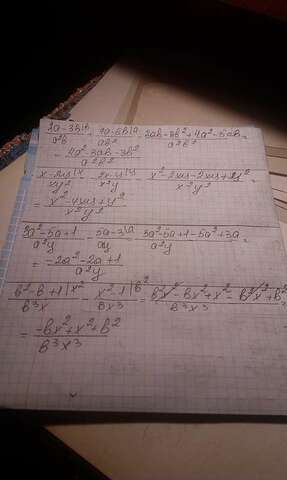 2a-3b|b/a²b + 4a-5b|a/ab² = 2ab-3b²+4a²-5ab/a²b² =
= 4a²-3ab-3b²/a²b²
x-2y|x/xy² - 2x-y|y/x²y = x²-2xy-2xy+y²/x²y² =
= x²-4xy+y²/x²y²
3a²-5a+1/a²y - 5a-3|a/ay = 3a²-5a+1-5a²+3a/a²y =
= -2a²-2a+1/a²y
b²-b+1|x²/b³x - x²-1|b²/bx³ = b²x²-bx²+x²-b²x²+b²/b³x³
= -bx²+x²+b²/b³x³